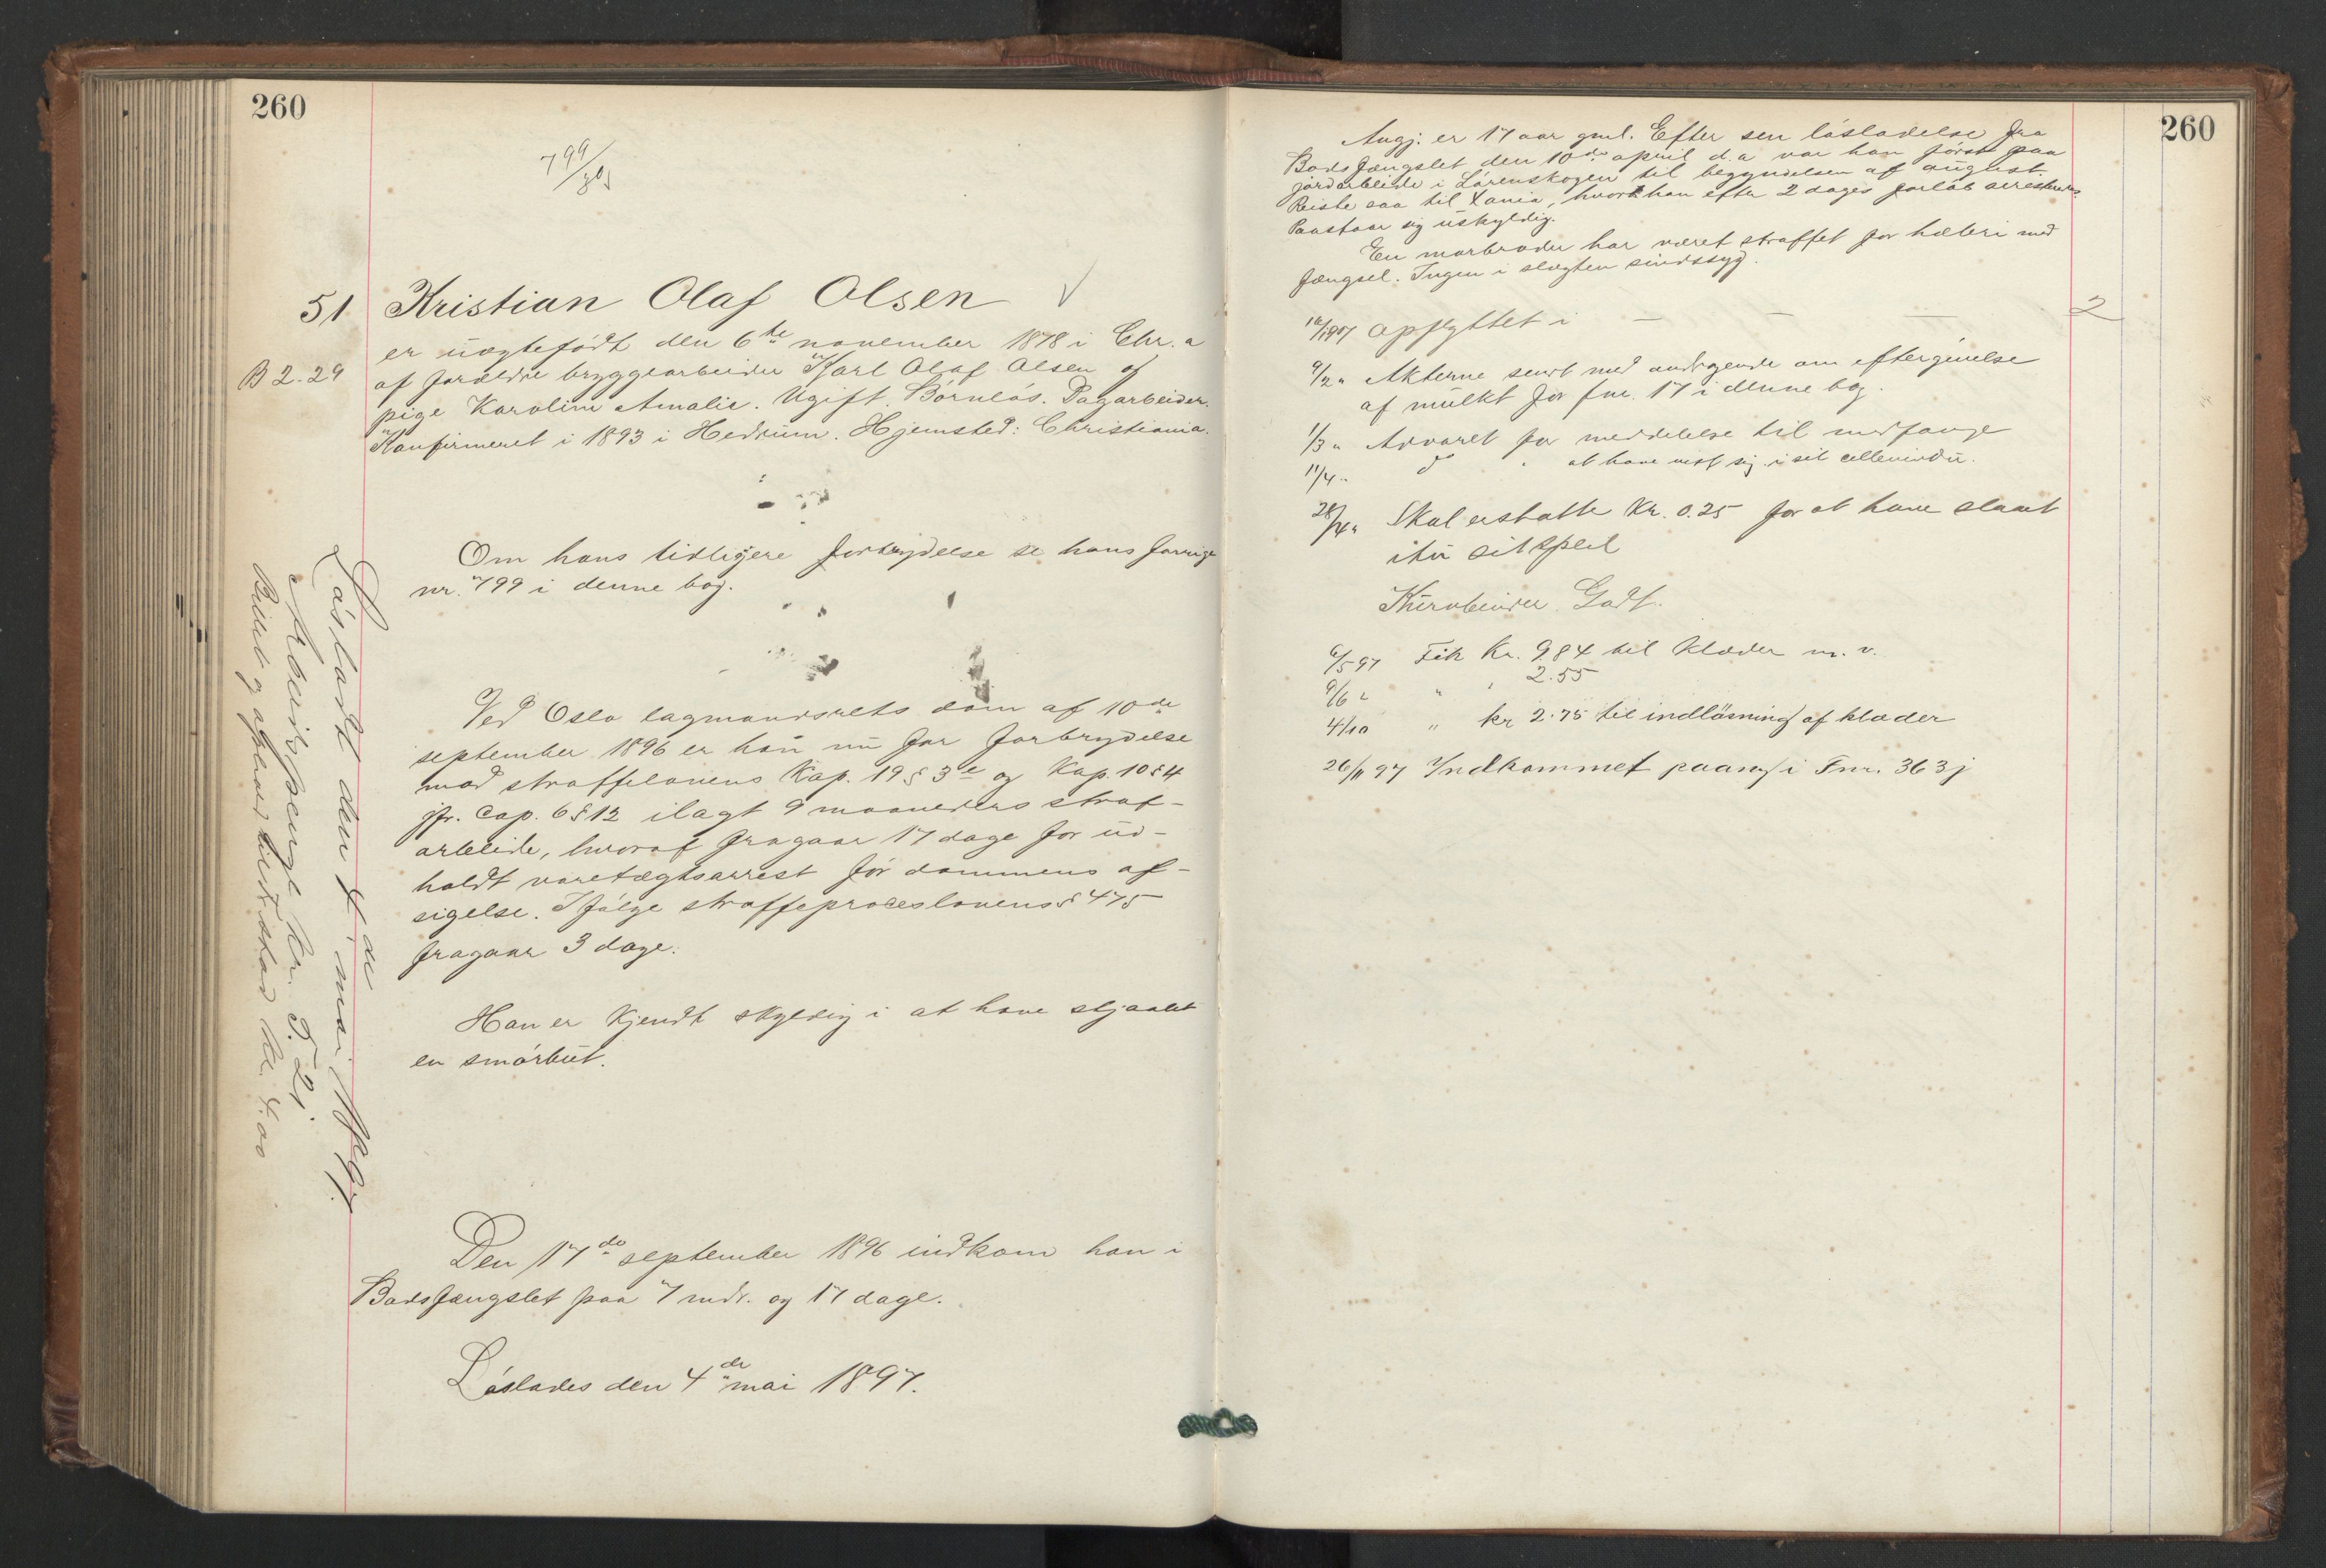 260
799/965
51 Kristian Olaf Olsen
B 2.29
er uægtefødt den 6te november 1878 i Chr.a
af forældre bryggearbeider Karl Olaf Olsen og
pige Karoline Amalie. Ugift. Børnløs. Dagarbeider.
Konfirmeret i 1893 i Hedrum. Hjemsted: Christiania.
Om hans tidligere forbrydelse se hans forrige
nr. 799 i denne bog.
Ved Oslo lagmandsrets dom af 10de
september 1896 er han nu for forbrydelse
mod straffelovens Kap. 19 § 3 og Kap. 10 § 4
jfr. Cap. 6 § 12 ilagt 9 maaneders straf-
arbeide, hvoraf fragaar 17 dage for ud-
holdt varetægtsarrest før dommens af-
sigelse. Ifølge straffeproceslovens § 475
fragaar 3 dage.
Han er kjendt skyldig i at have stjaalet
en smørbut.
Den 17de september 1896 indkom han i
Bodsfængslet paa 7 mdr. og 17 dage.
Løslades den 4de mai 1897.
Løsladt den 4de mai 1897.
Arbeidspenge kr. 5.21.
Billet og afholdt tilskud kr. 4.00
260
Angj. er 17 aar gml. Efter sen løsladelse fra
Bodsfængslet den 10de april d.a var han først paa
jordarbeide i Lørenskogen til begyndelsen af august.
Reiste saa til Xania, hvor han efter 2 dages forløb arresteres.
Paastaar sig uskyldig.
En morbroder har været straffet for hæleri med
fængsel. Ingen i slægten sindssyg.
2
1897 Opflyttet i — — —
9/2 " Akterne sendt med andragende om eftergivelse
af mulkt for fnr. 17 i denne bog.
1/3 " Advaret for meddelelse til medfange
11/4 " do " at have vist sig i sit cellevindu.
28/4 " Skal erstatte Kr. 0.25 for at have slaat
itu sit speil
Kurvbinder. Godt.
6/5 97 Fik Kr. 9.84 til klæder m. v.
9/6 " " " 2.55
4/10 " kr 2.75 til indløsning af klæder
26/11 97 Indkommet paany i Fnr. 363j